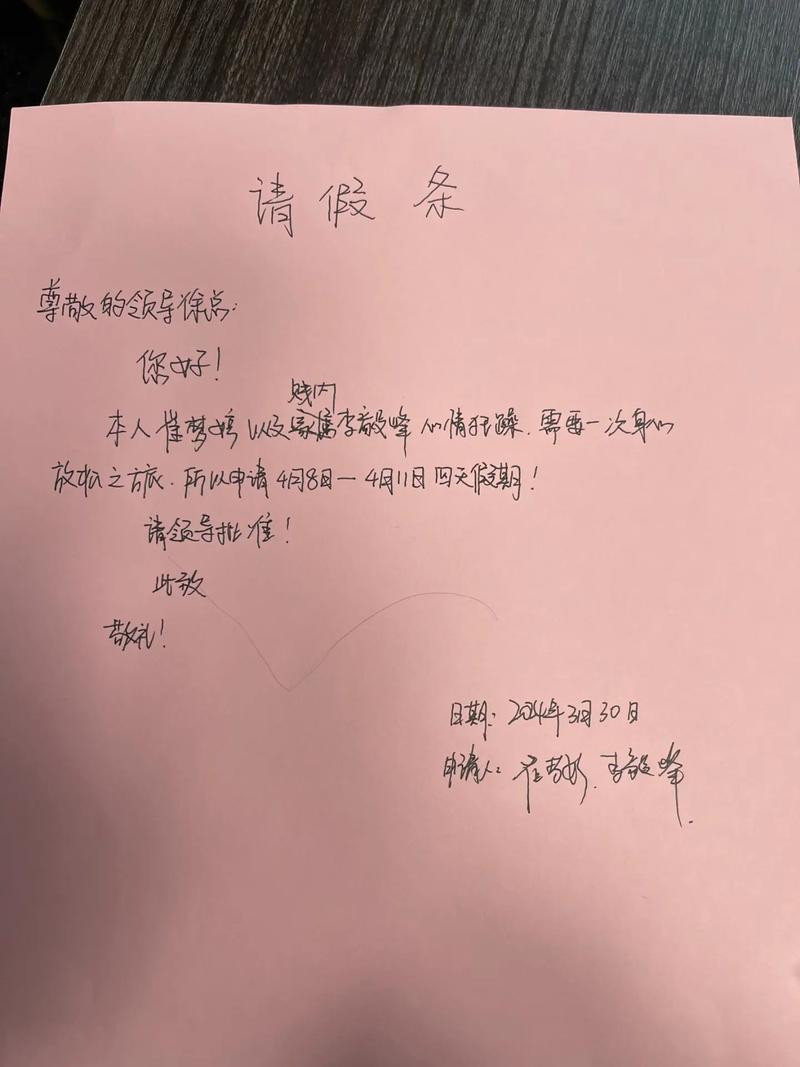 请假条
尊敬的领导徐总:
您好!
贱内
本人崔梦娇以及家属李毅峰心情狂躁.需要一次身心
放松之旅.所以申请4月8日—4月11日四天假期!
请领导批准!
此致
敬礼!
日期:2024年3月30日
申请人:崔梦娇.李毅峰.